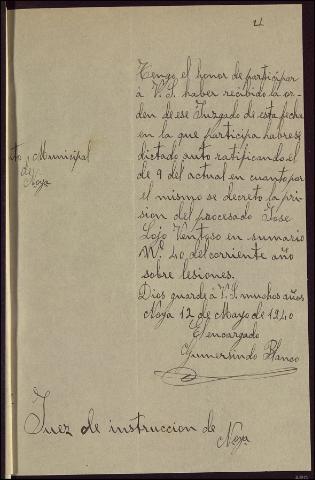 4
Tengo el honor de participar
á V.S. haber recibido la or-
den de ese Juzgado de esta fecha
en la que participa haberse
dictado auto ratificando el
de 9 del actual en cuanto por
el mismo se decreto la pri
sion del procesado Jose
Lojo Ventoso en sumario
Nº 40 del corriente año
sobre lesiones.
Dios guarde á V.S. muchos años
Noya 12 de Mayo de 1940
El encargado
Gumersindo Blanco
Municipal
de
Noya
Juez de instruccion de
Noya